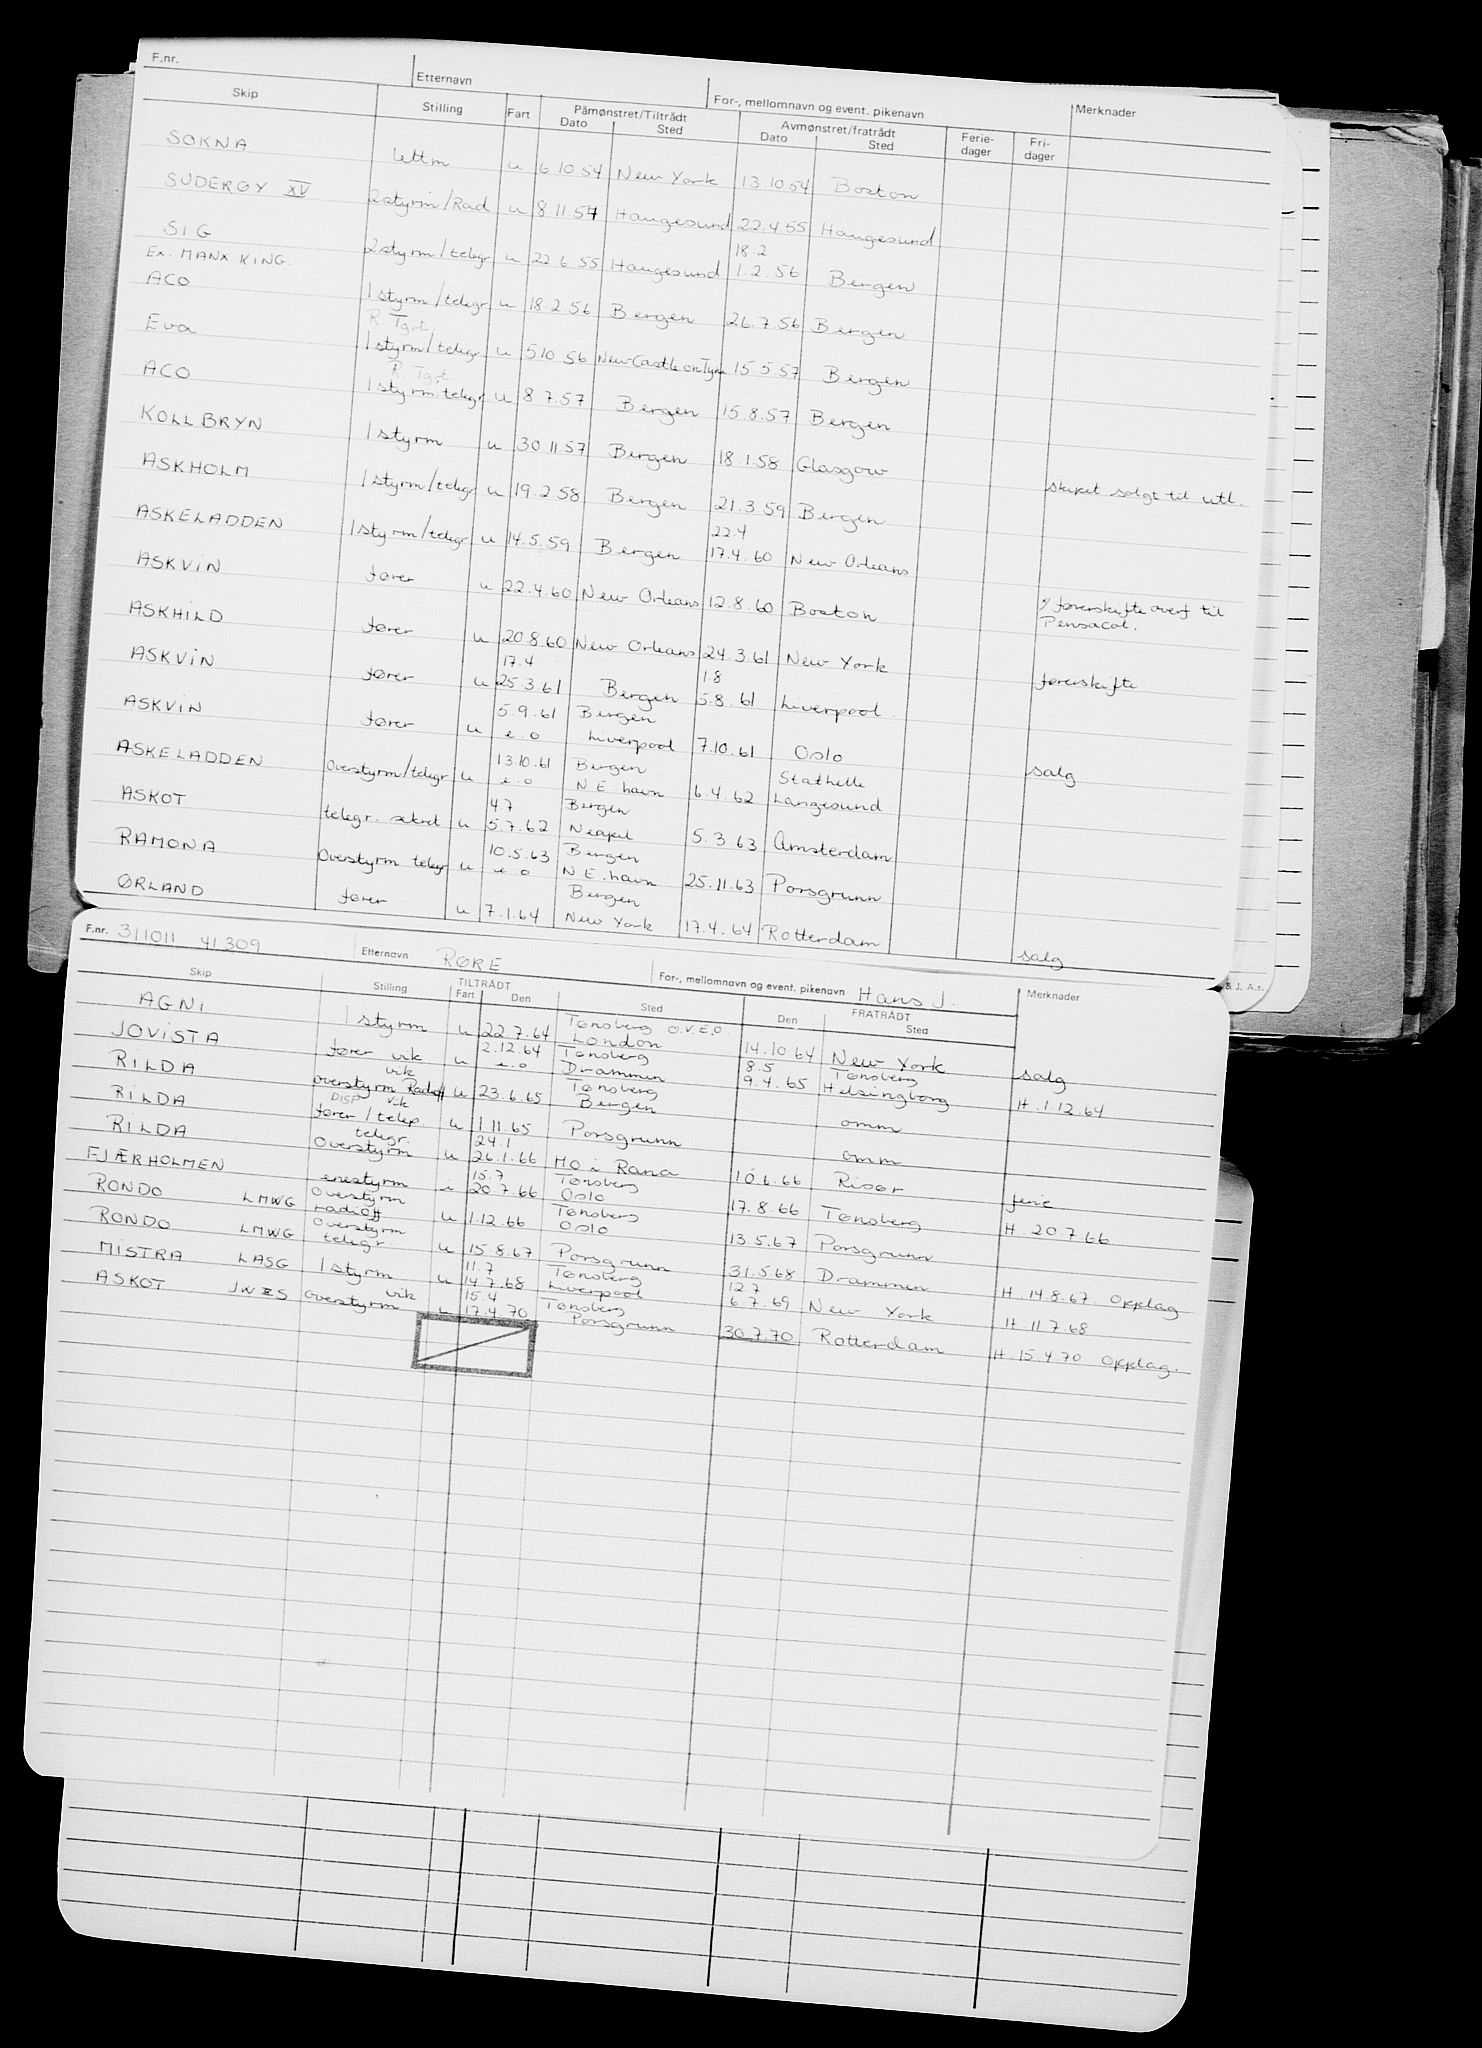 F.nr. Etternavn For-, mellomnavn og event. pikenavn Merknader
Skip Stilling Fart Påmønstret/Tiltrådt Dato Sted Avmønstret/fratrådt Dato Sted Ferie-dager Fri-dager
SOKNA lettm u 6.10.54 New York 13.10.54 Boston
SUDERØY XV 2styrm/Rad u 8.11.54 Haugesund 22.4.55 Haugesund
SIG 2styrm/telegr u 22.6.55 Haugesund 18.2 1.2.56 Bergen
Ex. MANX KING.
ACO 1styrm/telegr u 18.2.56 Bergen 26.7.56 Bergen
R. Tgrt.
Eva 1styrm/telegr u 5.10.56 NewCastle on Tyne 15.5.57 Bergen
R. Tgrt
ACO 1styrm.telegr u 8.7.57 Bergen 15.8.57 Bergen
KOLLBRYN 1styrm u 30.11.57 Bergen 18.1.58 Glasgow
skipet solgt til utl.
ASKHOLM 1styrm/telegr u 19.2.58 Bergen 21.3.59 Bergen
ASKELADDEN 1styrm/telegr u 14.5.59 Bergen 22.4 17.4.60 New Orleans
ASKVIN fører u 22.4.60 New Orleans 12.8.60 Boston
førerskifte overf til Pensacol.
ASKHILD fører u 20.8.60 New Orleans 24.3.61 New York førerskifte
ASKVIN fører u 17.4 25.3.61 Bergen 1.8 5.8.61 Liverpool
ASKVIN fører u 5.9.61 e.o Bergen Liverpool 7.10.61 Oslo salg
ASKELADDEN Overstyrm/telegr u 13.10.61 e.o Bergen N.E.havn 6.4.62 Stathelle Langesund
ASKOT telegr. sekret u 4.7 5.7.62 Bergen Neapel 5.3.63 Amsterdam
RAMONA Overstyrm telegr u 10.5.63 e o Bergen N E.havn 25.11.63 Porsgrunn
ØRLAND fører u 7.1.64 Bergen New York 17.4.64 Rotterdam salg
& J. A.s.
F.nr. 311011 41309 Etternavn RØRE For-, mellomnavn og event. pikenavn Hans J. Merknader
Skip Stilling TILTRÅDT Fart Den Sted FRATRÅDT Den Sted
AGNI 1 styrm u 22.7.64 Tønsberg O.V.E.O. London 14.10.64 New York salg
JOVISTA fører vik u 2.12.64 e.o Tønsberg Drammen 8.5 9.4.65 Tønsberg Helsingborg H.1.12.64
RILDA vik overstyrm Radioff u 23.6.65 Tønsberg Bergen omm
RILDA DISP vik fører/telegr. u 1.11.65 Porsgrunn omm
RILDA telegr. Overstyrm u 24.1 26.1.66 MO i Rana 10.6.66 Risør ferie
FJÆRHOLMEN enestyrm i 15.7 20.7.66 Tønsberg Oslo 17.8.66 Tønsberg H. 20.7.66
RONDO LMWG Overstyrm radioff u 1.12.66 Tønsberg Oslo 13.5.67 Porsgrunn
RONDO LMWG Overstyrm telegr u 15.8.67 Porsgrunn 31.5.68 Drammen H. 14.8.67 Opplag
MISTRA LASG 1 styrm u 11.7 14.7.68 Tønsberg Liverpool 12.7 6.7.69 New York H. 11.7.68
ASKOT JWES vik Overstyrm u 15.4 17.4.70 Tønsberg Porsgrunn 30.7.70 Rotterdam H. 15.4.70 Opplag.